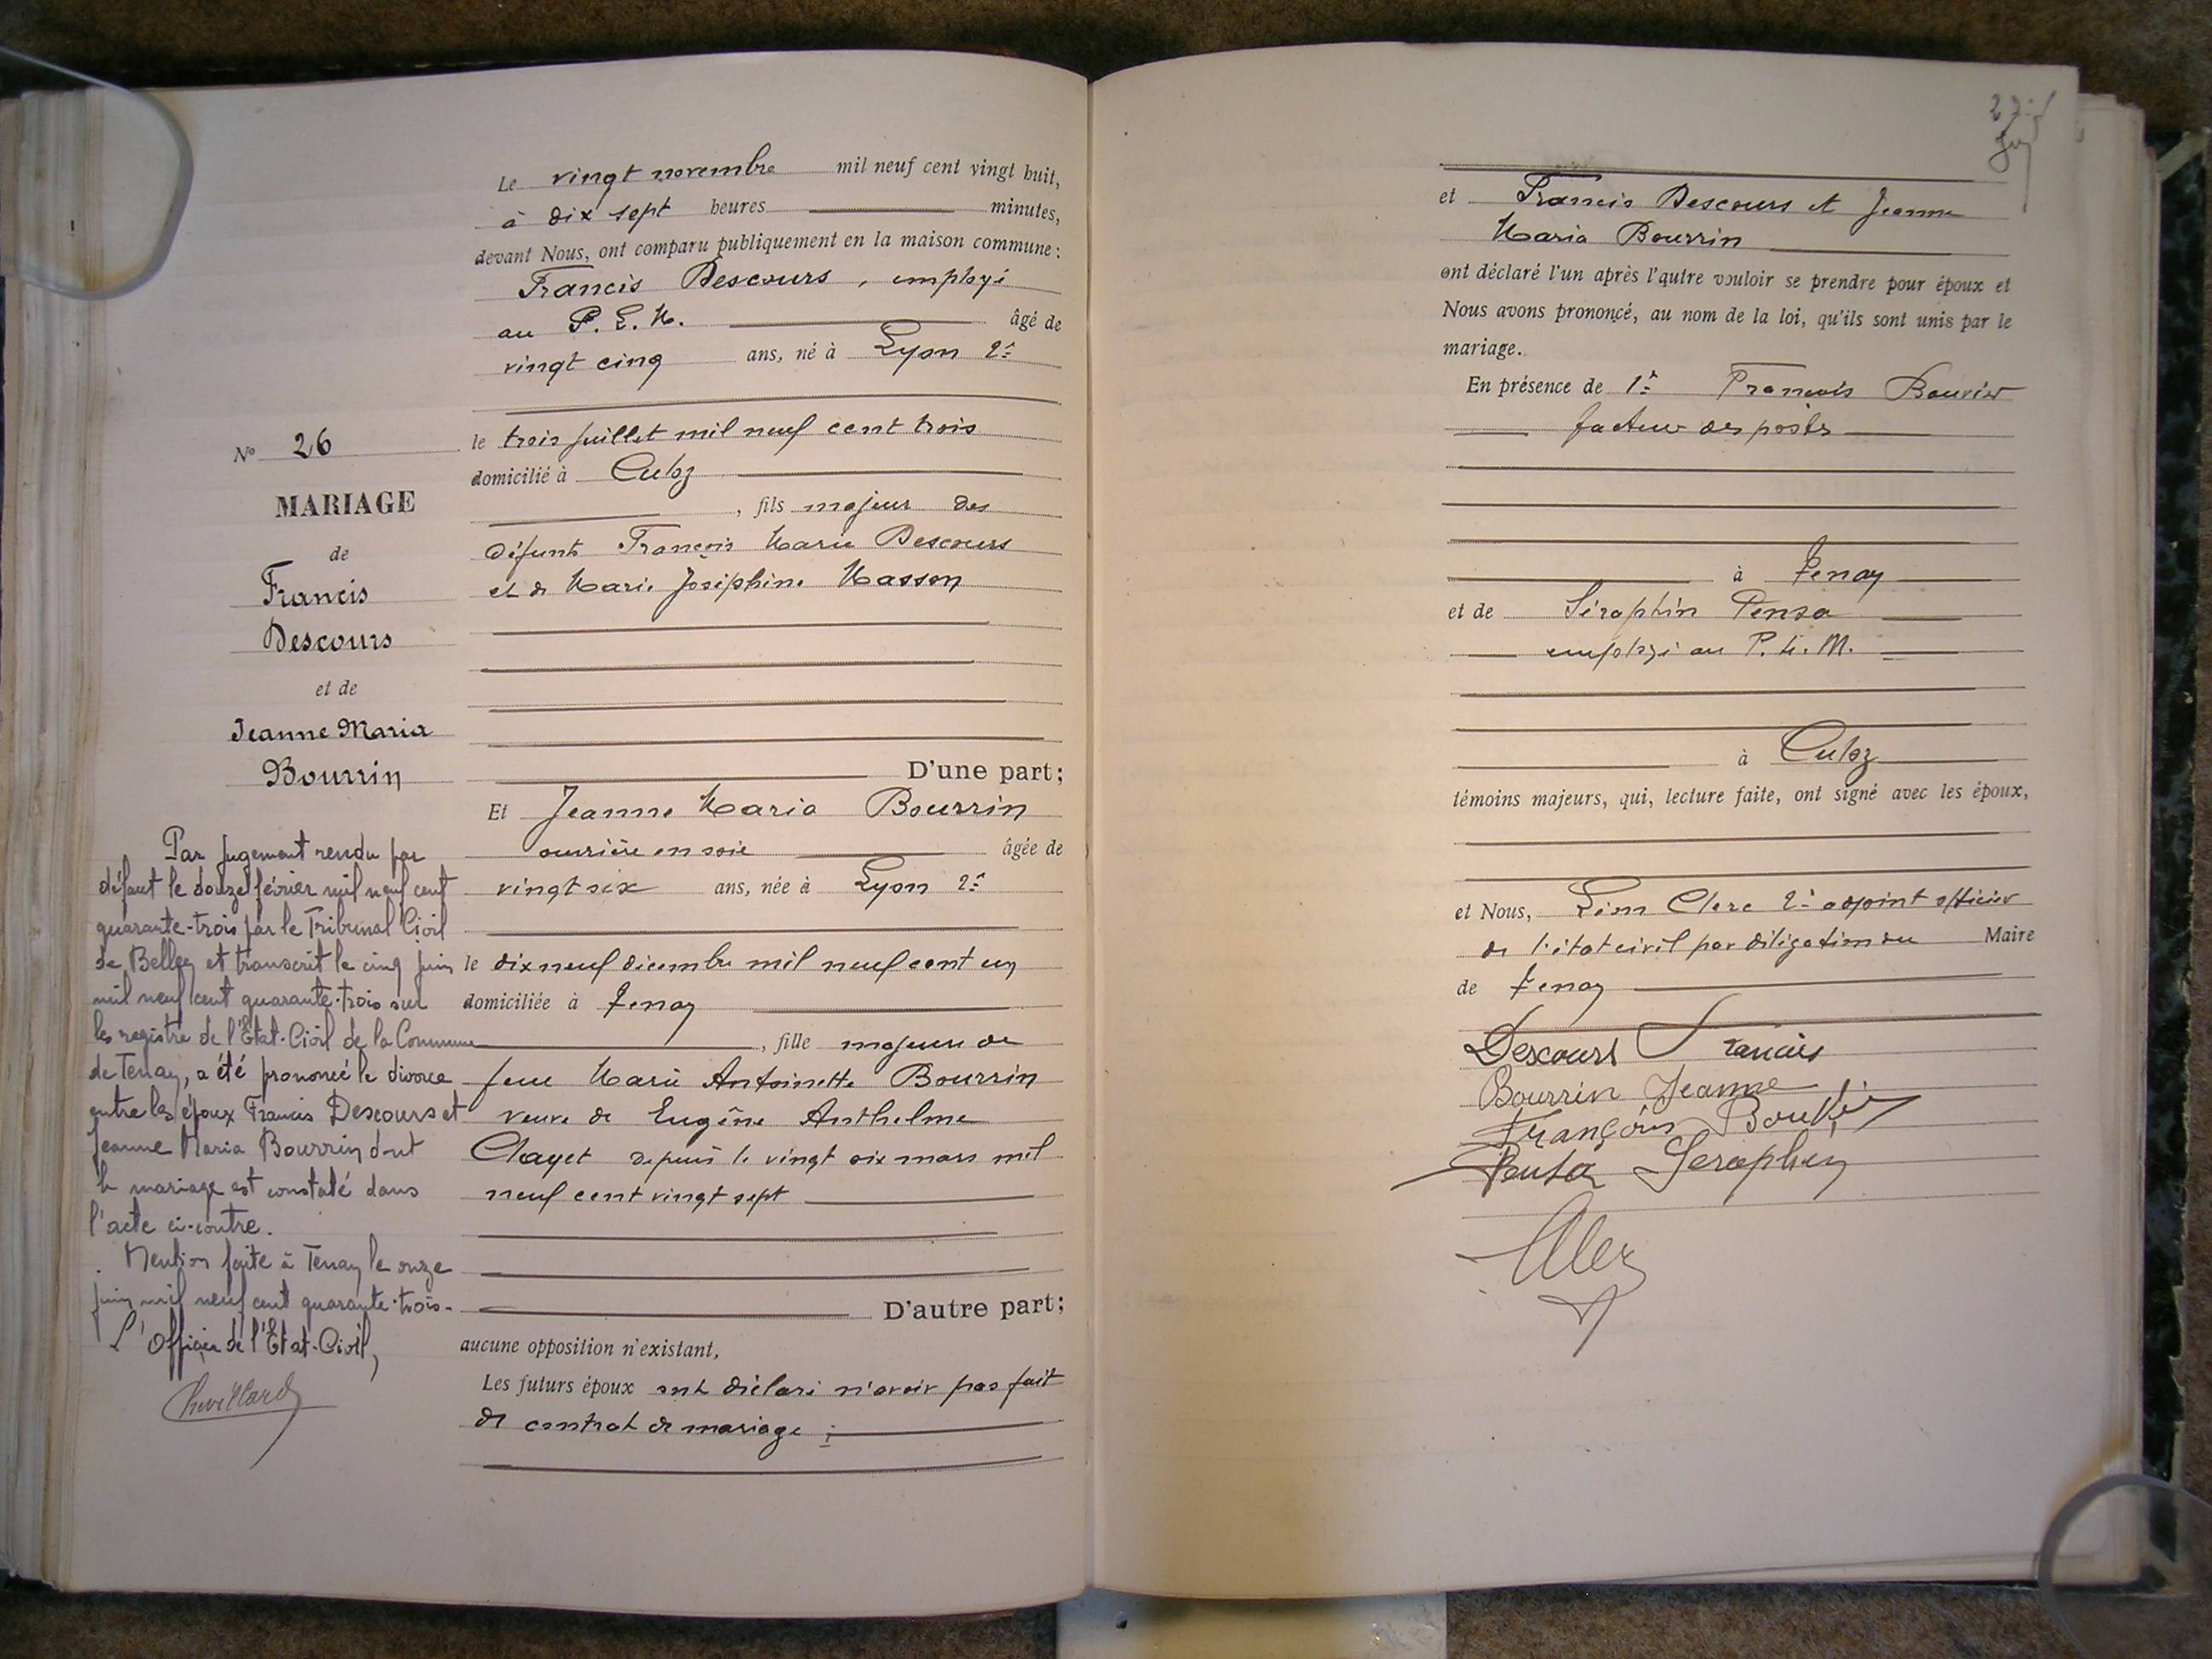 Le vingt novembre mil neuf cent vingt huit,
à dix sept heures minutes,
devant Nous, ont comparu publiquement en la maison commune :
Francis Descours, employé
au P. L. M. âgé de
vingt cinq ans, né à Lyon 2e
le trois juillet mil neuf cent trois
domicilié à Culoz
, fils majeur des
défunts François Marie Descours
et de Marie Joséphine Masson
D'une part;
Et Jeanne Maria Bourrin
ouvrière en soie âgée de
vingt six ans, née à Lyon 2e
le dix neuf décembre mil neuf cent un
domiciliée à Tenay
, fille majeure de
feue Marie Antoinette Bourrin
veuve de Eugène Anthelme
Clayet depuis le vingt six mars mil
neuf cent vingt sept
D'autre part;
aucune opposition n'existant,
Les futurs époux ont déclaré n'avoir pas fait
de contrat de mariage ;
No 26
MARIAGE
de
Francis
Descours
et de
Jeanne Maria
Bourrin
Par jugement rendu par
défaut le douze février mil neuf cent
quarante-trois par le Tribunal Civil
de Belley et transcrit le cinq juin
mil neuf cent quarante-trois sur
les registre de l'Etat-Civil de la Commune
de Tenay, a été prononcé le divorce
entre les époux Francis Descours et
Jeanne Maria Bourrin dont
le mariage est constaté dans
l'acte ci-contre.
Mention faite à Tenay le onze
juin mil neuf cent quarante-trois.
L'Officier de l'Etat-Civil,
Chevillard
et Francis Descours et Jeanne
Maria Bourrin
ont déclaré l'un après l'autre vouloir se prendre pour époux et
Nous avons prononcé, au nom de la loi, qu'ils sont unis par le
mariage.
En présence de 1e François Bouvier
facteur des postes
à Tenay
et de Séraphin Pensa
employé au P. L. M.
à Culoz
témoins majeurs, qui, lecture faite, ont signé avec les époux,
et Nous, Léon Clerc 2e adjoint officier
de l'état civil par déligation du Maire
de Tenay
Descours Francis
Bourrin Jeanne
François Bouvier
Pensa Seraphin